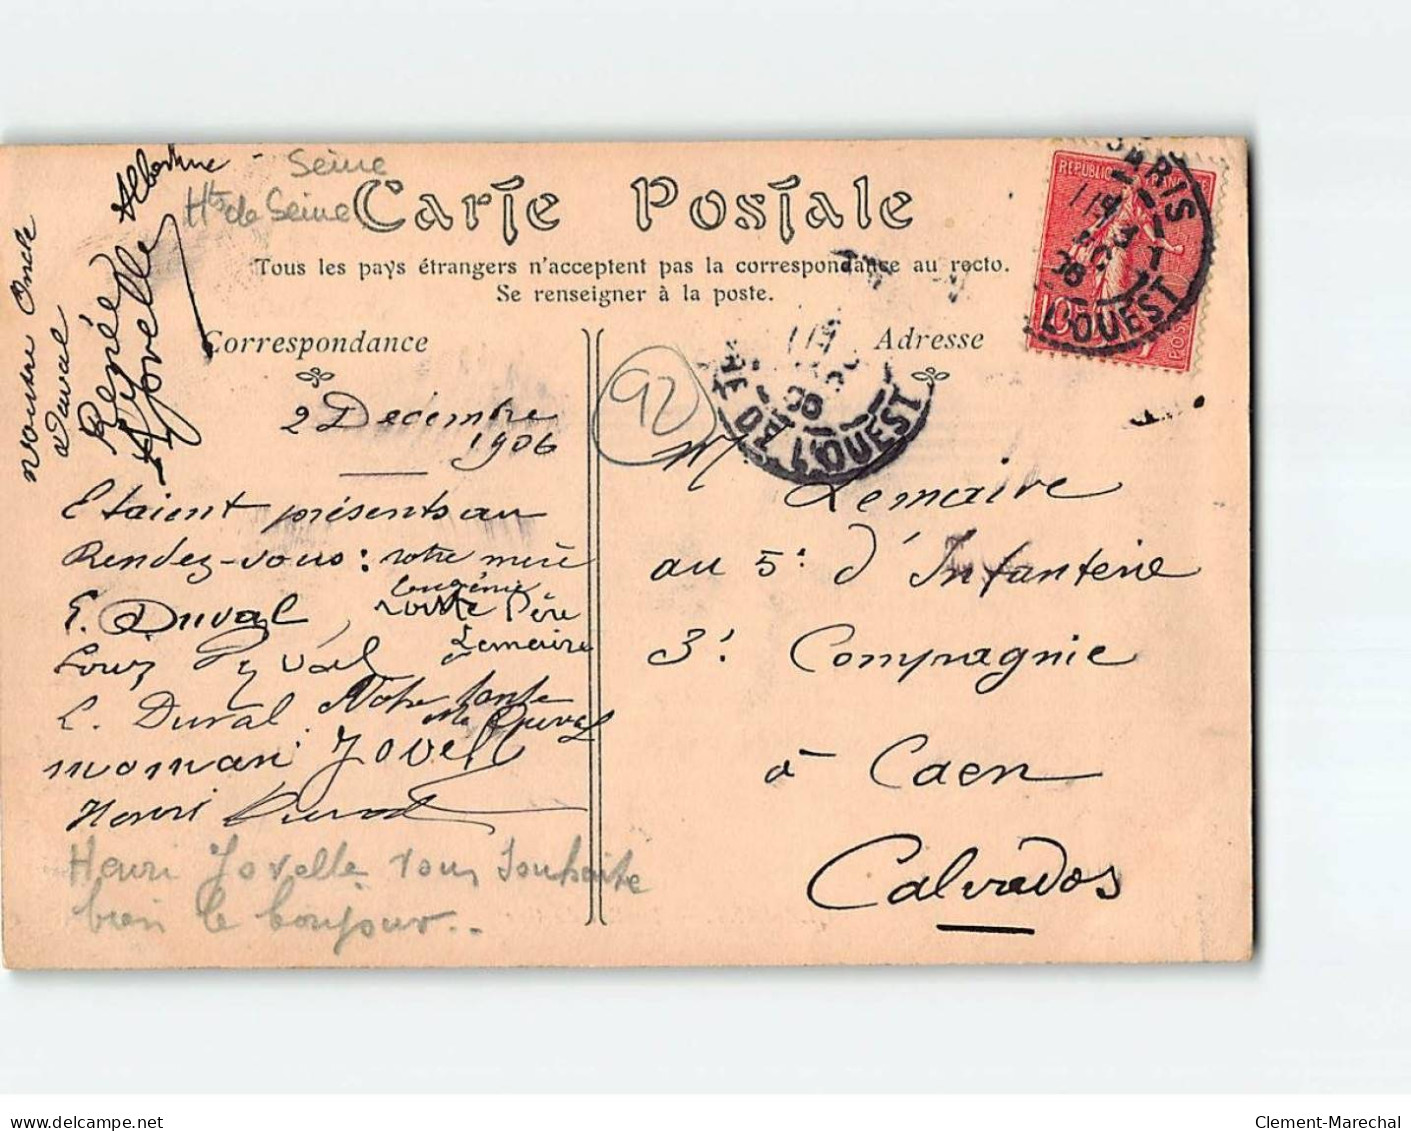 Seine
Hts de Seine
Carte Postale
Tous les pays étrangers n'acceptent pas la correspondance au recto.
Se renseigner à la poste.
Correspondance
Adresse
92
REPUBLIQUE
10
POSTES
PARIS
L'OUEST
RE DE L'OUEST
Albertine
Renée
Jovelle
votre Oncle
Duval
2 Décembre
1906
Etaient présents au
Rendez-vous : votre mère
Eugénie
E. Duval, votre Père
Lemaire
Louis Duval
L. Duval Notre tante
Me Duval
maman Jovel
Henri Duval
Henri Jovelle vous souhaite
bien le bonjour..
Mr Lemaire
au 5e d'Infanterie
3e Compagnie
à Caen
Calvados
delcampe.net
Clement-Marechal